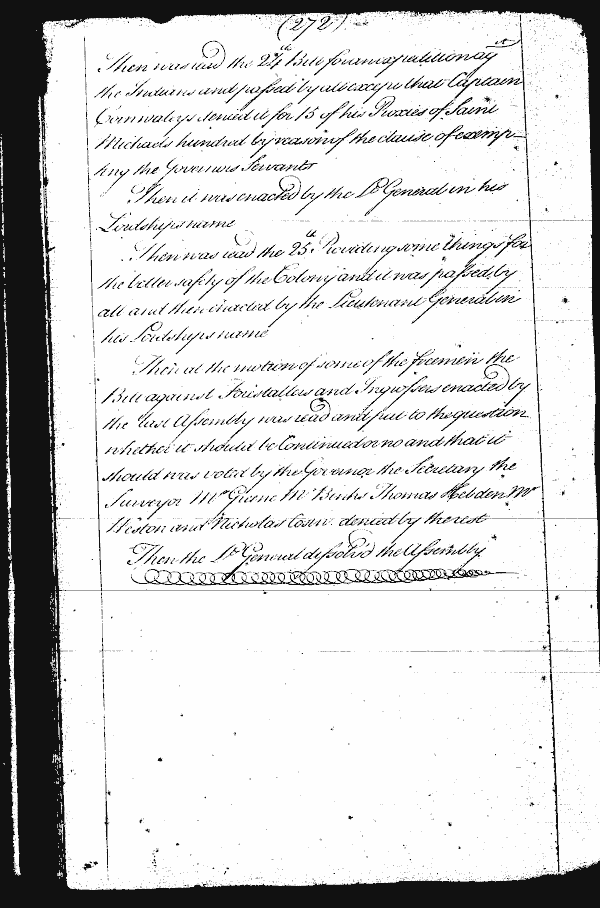 (272)
Then was read the 24th Bill for an expedition ag.st
the Indians and passed by all except that Captain
Cornwaleys denied it for 15 of his Proxies of Saint
Michaels hundred by reason of the clause of exemp-
ting the Governors Servants
Then it was enacted by the Lt General in his
Lordships name
Then was read the 25th Providing some things for
the better safety of the Colony and it was passed by
all and then enacted by the Lieutenant General in
his Lordships name
Then at the motion of some of the freemen the
Bill against Foristallers and Ingrossers enacted by
the last Assembly was read and put to the question
whether it should be Continued or no and that it
should was voted by the Governor the Secretary the
Surveyor Mr Greene Mr Binks Thomas Hebden Mr
Weston and Nicholas Cosin. denied by the rest
Then the Lt General dissolv'd the Assembly